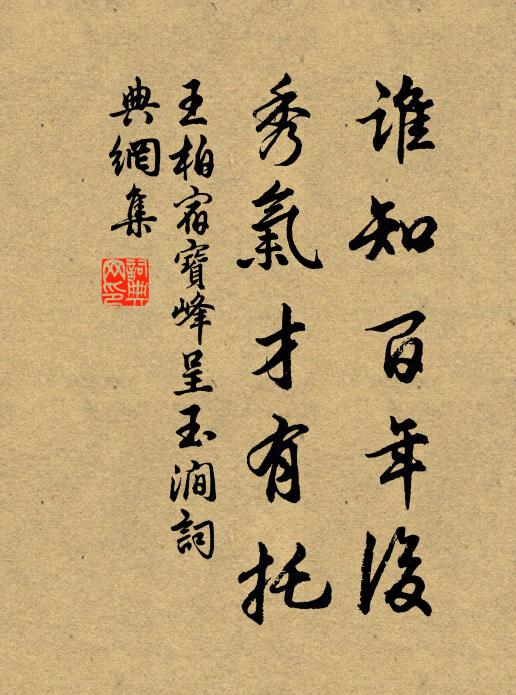 誰知百年後
秀氣才有托
王柏宿寶峰呈玉澗詞
典網集
詞典
网印